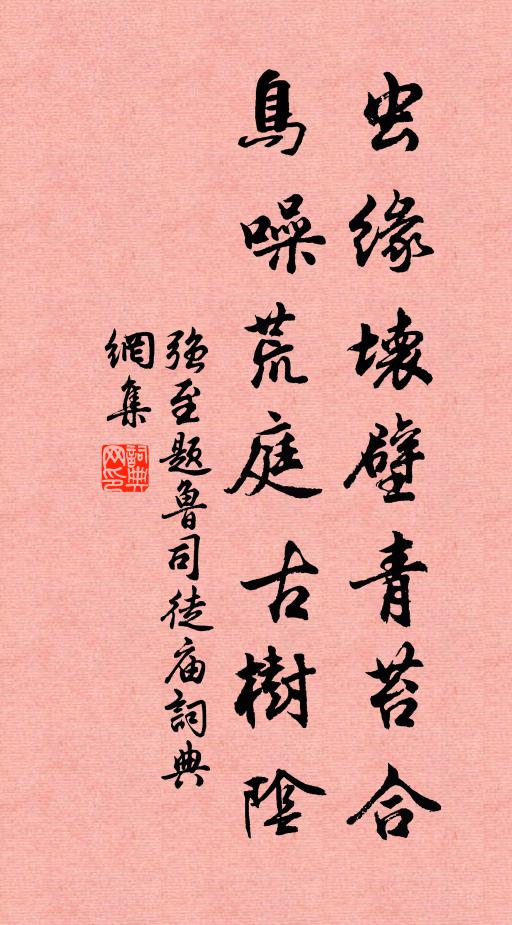 虫缘壊壁青苔合
鳥噪荒庭古樹陰
强至题魯司徒庙詞典
網集
詞典網印